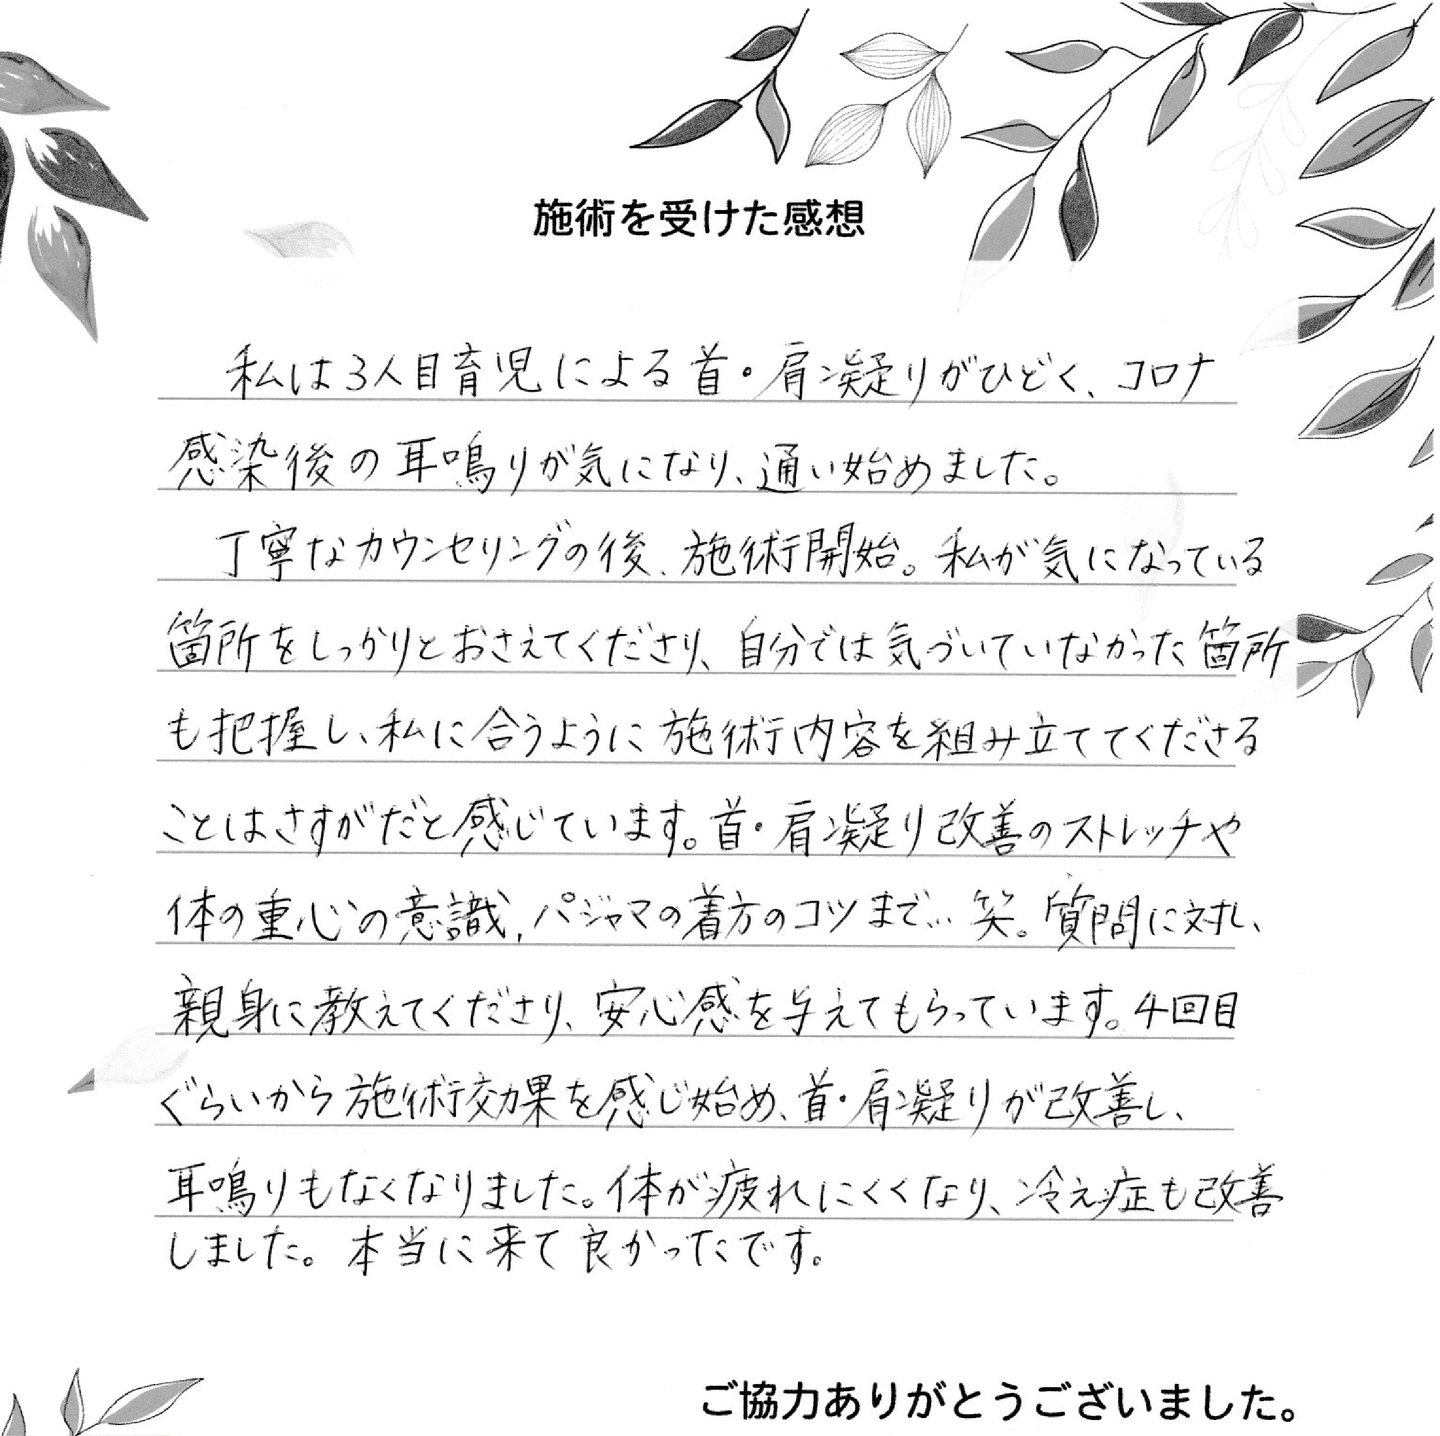 施術を受けた感想
私は3人目育児による首・肩凝りがひどく、コロナ
感染後の耳鳴りが気になり、通い始めました。
丁寧なカウンセリングの後、施術開始。私が気になっている
箇所をしっかりとおさえてくださり、自分では気づいていなかった箇所
も把握し、私に合うように施術内容を組み立ててくださる
ことはさすがだと感じています。首・肩凝り改善のストレッチや
体の重心の意識,パジャマの着方のコツまで… 笑。質問に対し、
親身に教えてくださり、安心感を与えてもらっています。4回目
ぐらいから施術効果を感じ始め、首・肩凝りが改善し、
耳鳴りもなくなりました。体が疲れにくくなり、冷え症も改善
しました。本当に来て良かったです。
ご協力ありがとうございました。